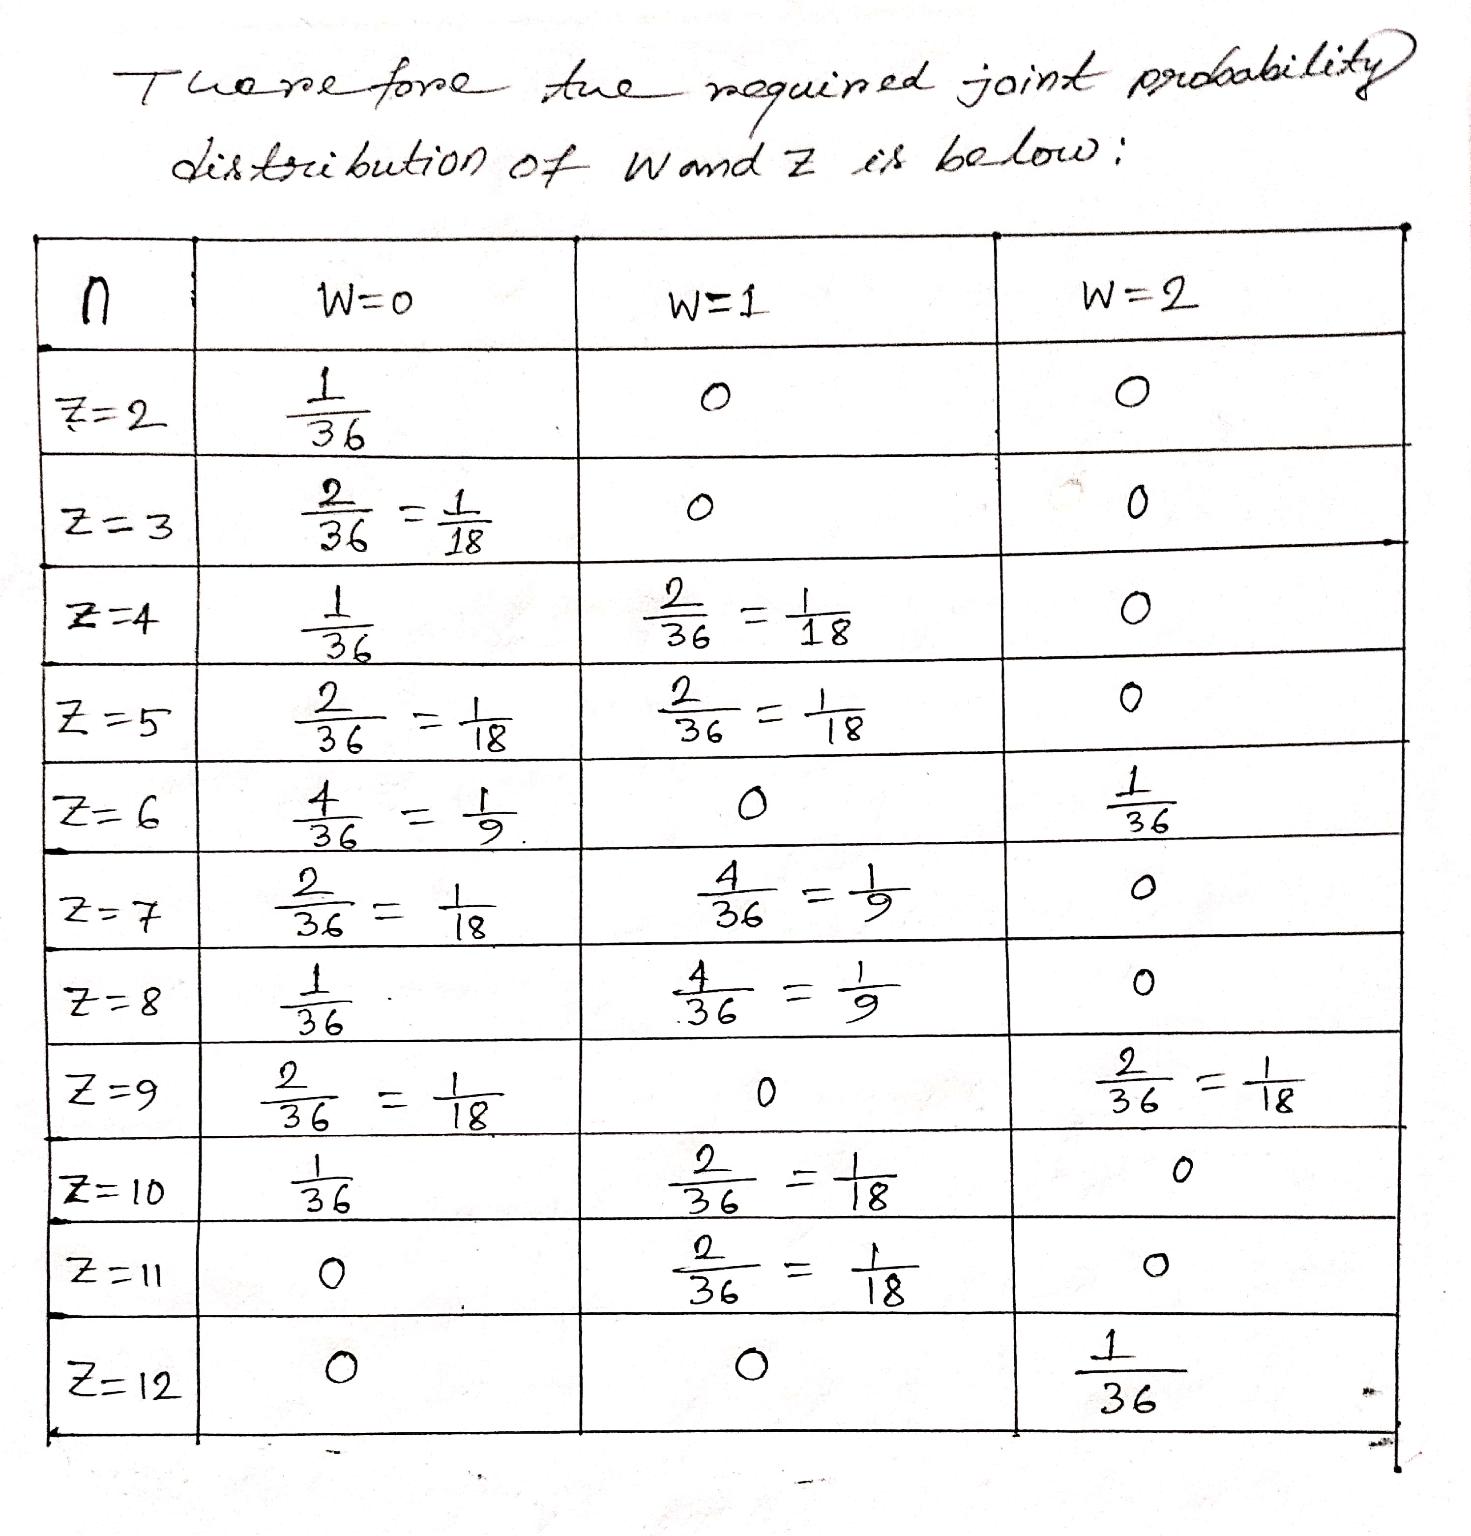 Therefore the required joint probability
distribution of W and Z is below:
n W=0 W=1 W=2
Z=2 1/36 0 0
Z=3 2/36 = 1/18 0 0
Z=4 1/36 2/36 = 1/18 0
Z=5 2/36 = 1/18 2/36 = 1/18 0
Z=6 4/36 = 1/9. 0 1/36
Z=7 2/36 = 1/18 4/36 = 1/9 0
Z=8 1/36 4/36 = 1/9 0
Z=9 2/36 = 1/18 0 2/36 = 1/18
Z=10 1/36 2/36 = 1/18 0
Z=11 0 2/36 = 1/18 0
Z=12 0 0 1/36